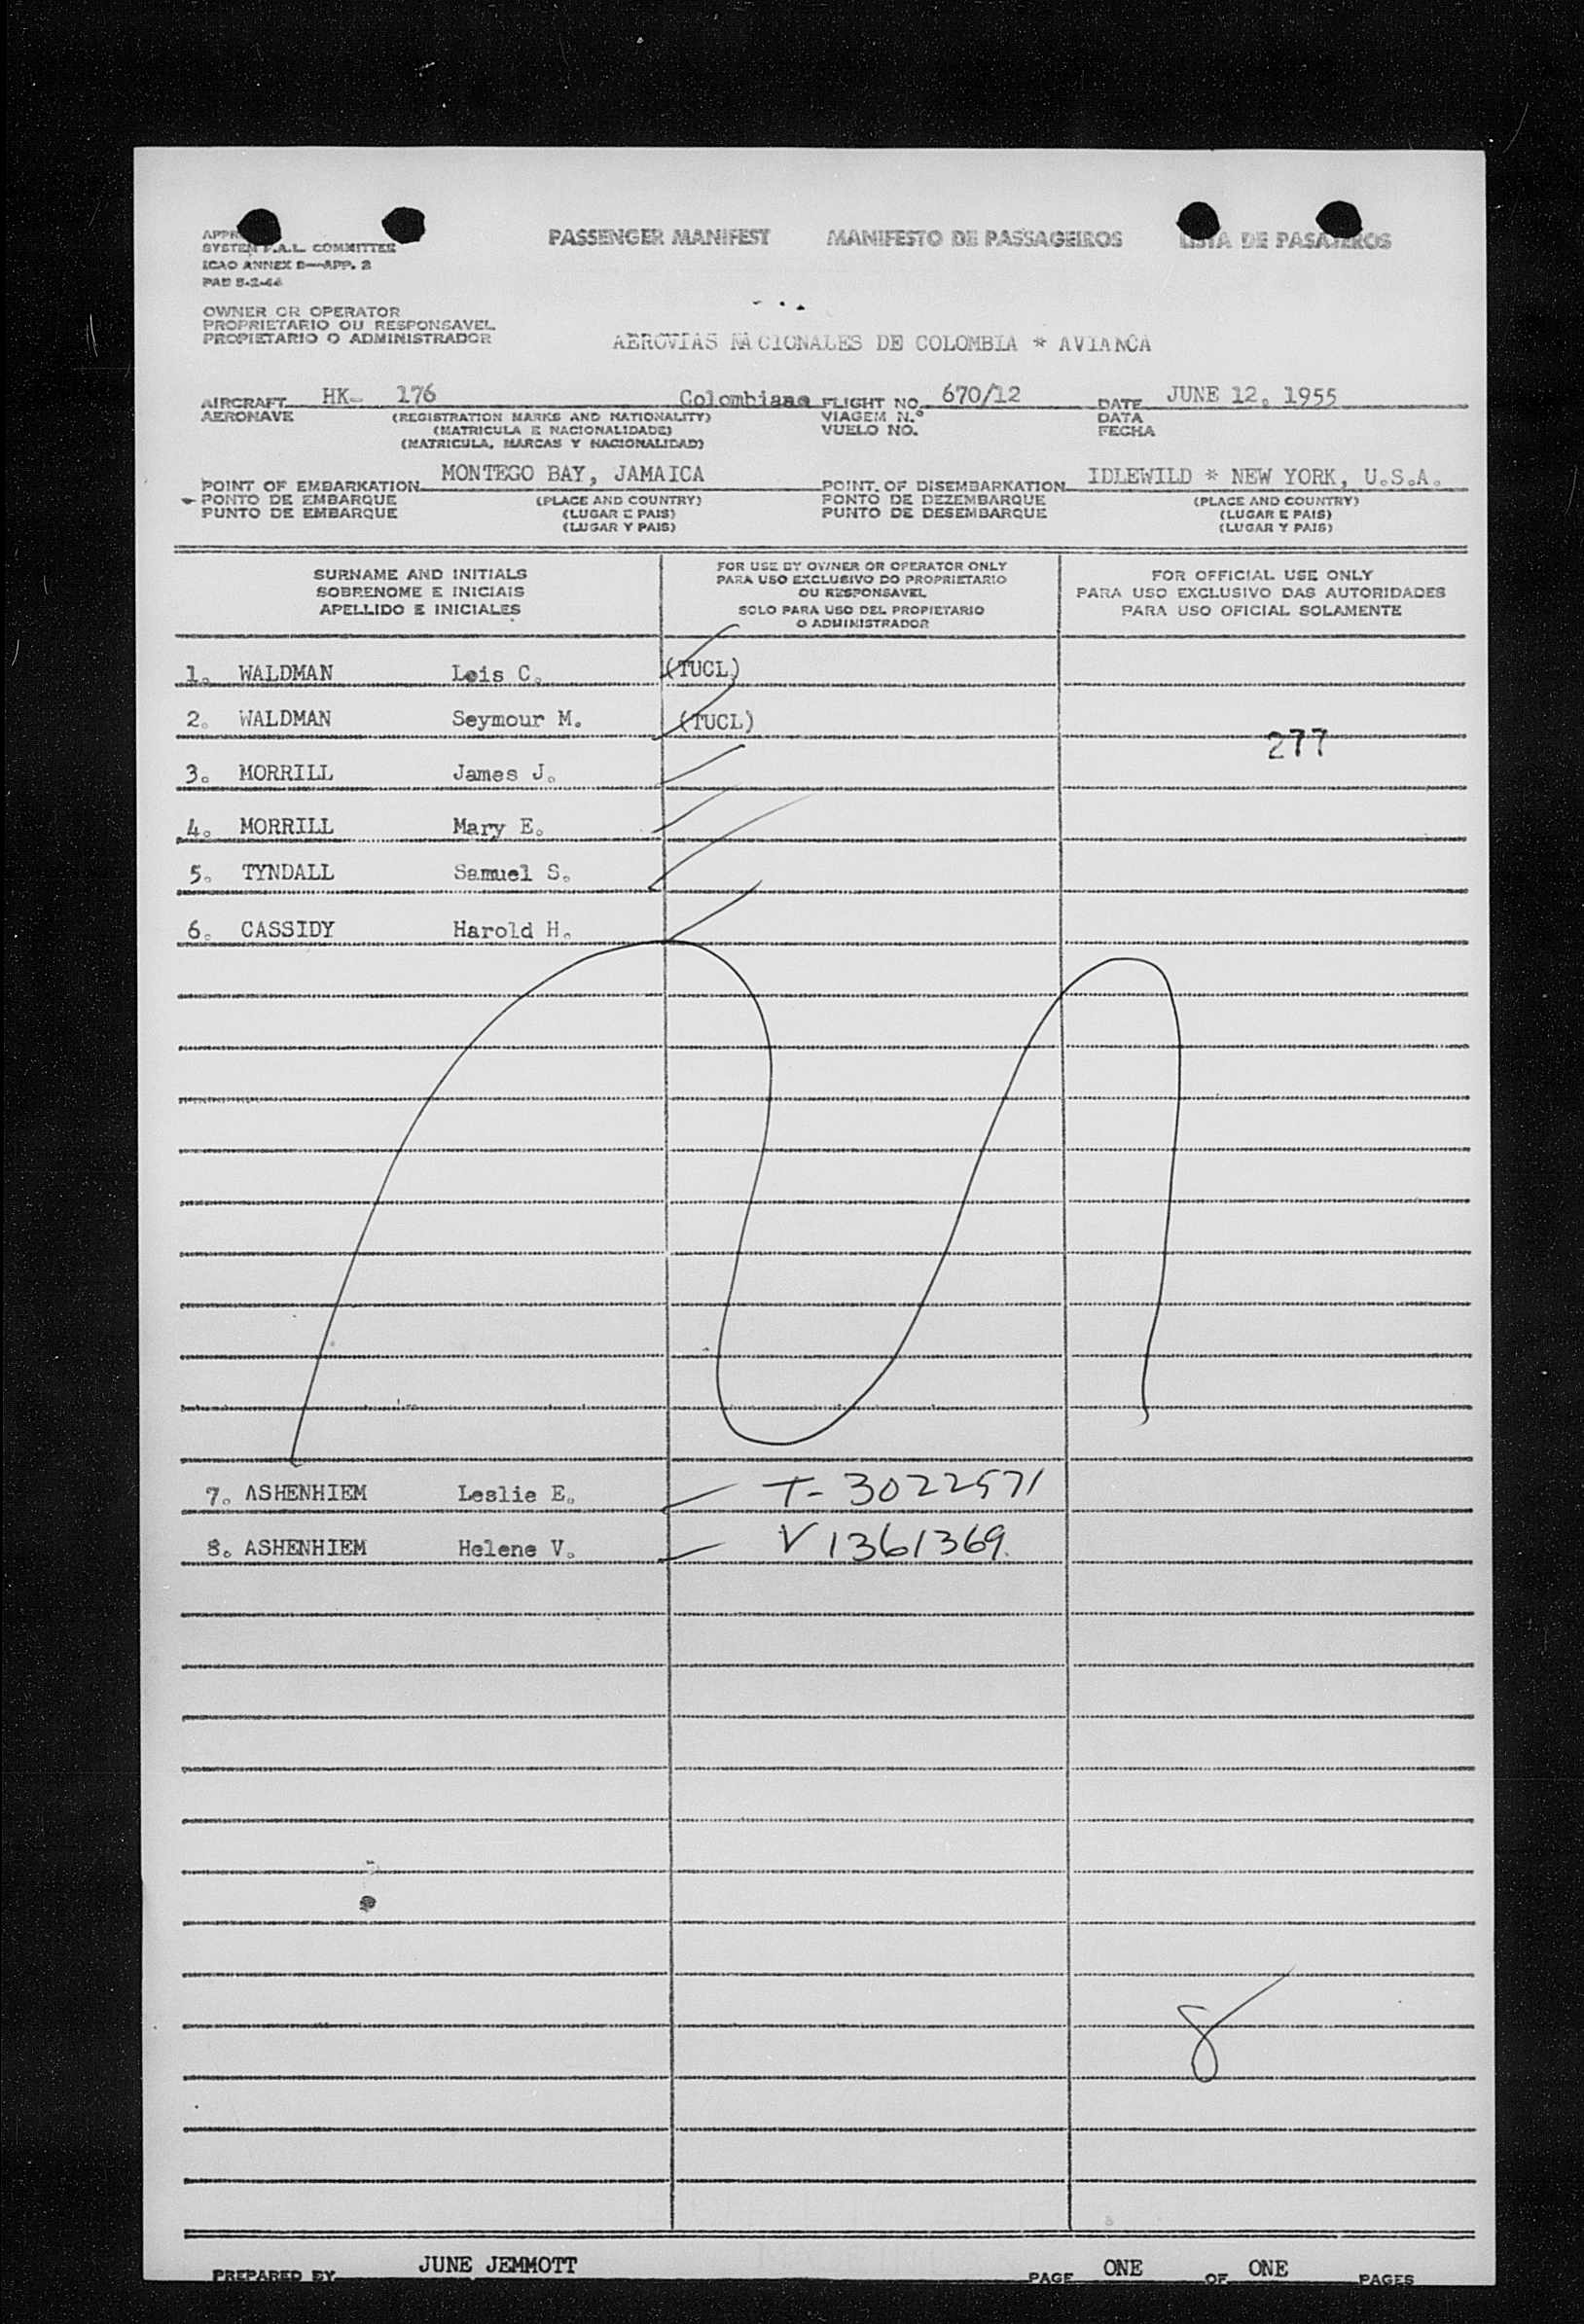 PASSENGER MANIFEST MANIFESTO DE PASSAGEIROS LISTA DE PASAJEROS
SYSTEM F.A.L. COMMITTEE
ICAO ANNEX 9—APP. 2
OWNER OR OPERATOR
PROPRIETARIO OU RESPONSAVEL
PROPIETARIO O ADMINISTRADOR
AEROVIAS NACIONALES DE COLOMBIA * AVIANCA
AIRCRAFT HK- 176 Colombiana FLIGHT NO. 670/12 DATE JUNE 12. 1955
AERONAVE (REGISTRATION MARKS AND NATIONALITY) VIAGEM N.° DATA
(MATRICULA E NACIONALIDADE) VUELO NO. FECHA
(MATRICULA, MARCAS Y NACIONALIDAD)
POINT OF EMBARKATION MONTEGO BAY, JAMAICA POINT. OF DISEMBARKATION IDLEWILD * NEW YORK, U.S.A.
PONTO DE EMBARQUE (PLACE AND COUNTRY) PONTO DE DEZEMBARQUE (PLACE AND COUNTRY)
PUNTO DE EMBARQUE (LUGAR E PAIS) PUNTO DE DESEMBARQUE (LUGAR E PAIS)
(LUGAR Y PAIS) (LUGAR Y PAIS)
SURNAME AND INITIALS
SOBRENOME E INICIAIS
APELLIDO E INICIALES
FOR USE BY OWNER OR OPERATOR ONLY
PARA USO EXCLUSIVO DO PROPRIETARIO
OU RESPONSAVEL
SOLO PARA USO DEL PROPIETARIO
O ADMINISTRADOR
FOR OFFICIAL USE ONLY
PARA USO EXCLUSIVO DAS AUTORIDADES
PARA USO OFICIAL SOLAMENTE
1. WALDMAN Lois C. (TUCL)
2. WALDMAN Seymour M. (TUCL)
277
3. MORRILL James J.
4. MORRILL Mary E.
5. TYNDALL Samuel S.
6. CASSIDY Harold H.
7. ASHENHIEM Leslie E. T- 3022571
8. ASHENHIEM Helene V. V 1361369.
8
PREPARED BY JUNE JEMMOTT PAGE ONE OF ONE PAGES